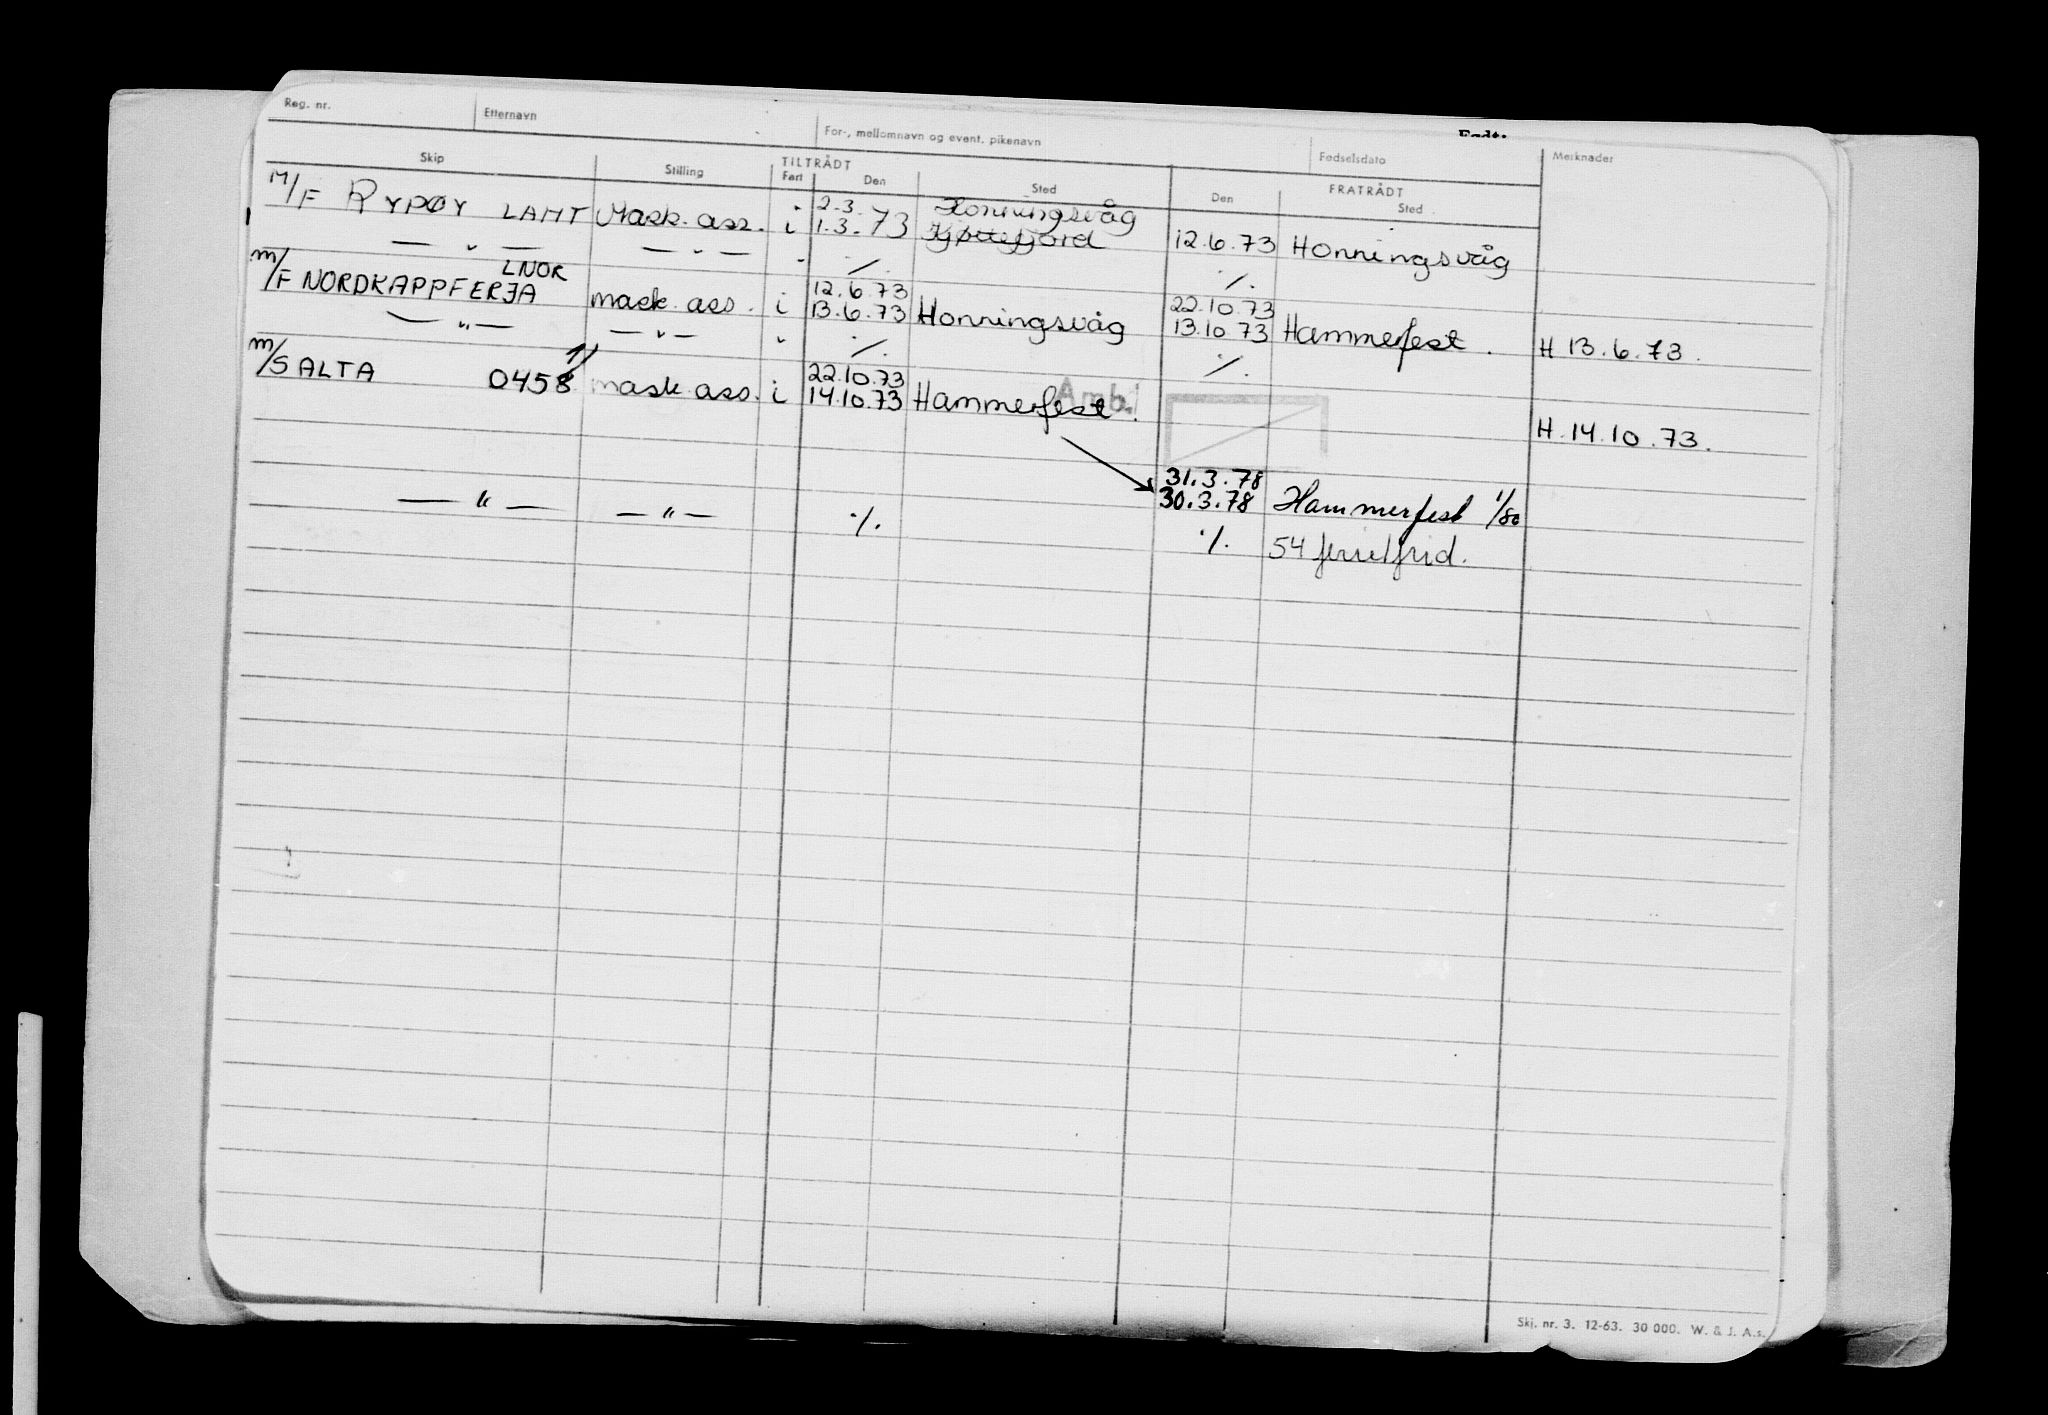 Reg. nr. Etternavn For-, mellomnavn og event. pikenavn Fødselsdato Merknader
Skip Stilling TILTRÅDT FRATRÅDT
Fart Den Sted Den Sted
2.3. Honningsvåg
M/F RYPØY LAMT Mask. ass. i 1.3.73 Kjøllefjord 12.6.73 Honningsvåg
— " — — " — " ./. ./.
LNOR 12.6.73 22.10.73
m/F NORDKAPPFERJA mask. ass. i 13.6.73 Honningsvåg 13.10.73 Hammerfest. H 13.6.73.
— " — — " — " ./. ./.
22.10.73
m/S ALTA 0458 mask ass. i 14.10.73 Hammerfest. H.14.10.73.
Amb.
31.3.78
30.3.78 Hammerfest 1/80
— " — — " — ./. ./. 54 ferie/frid.
Skj. nr. 3. 12-63. 30 000. W. & J. A.s.